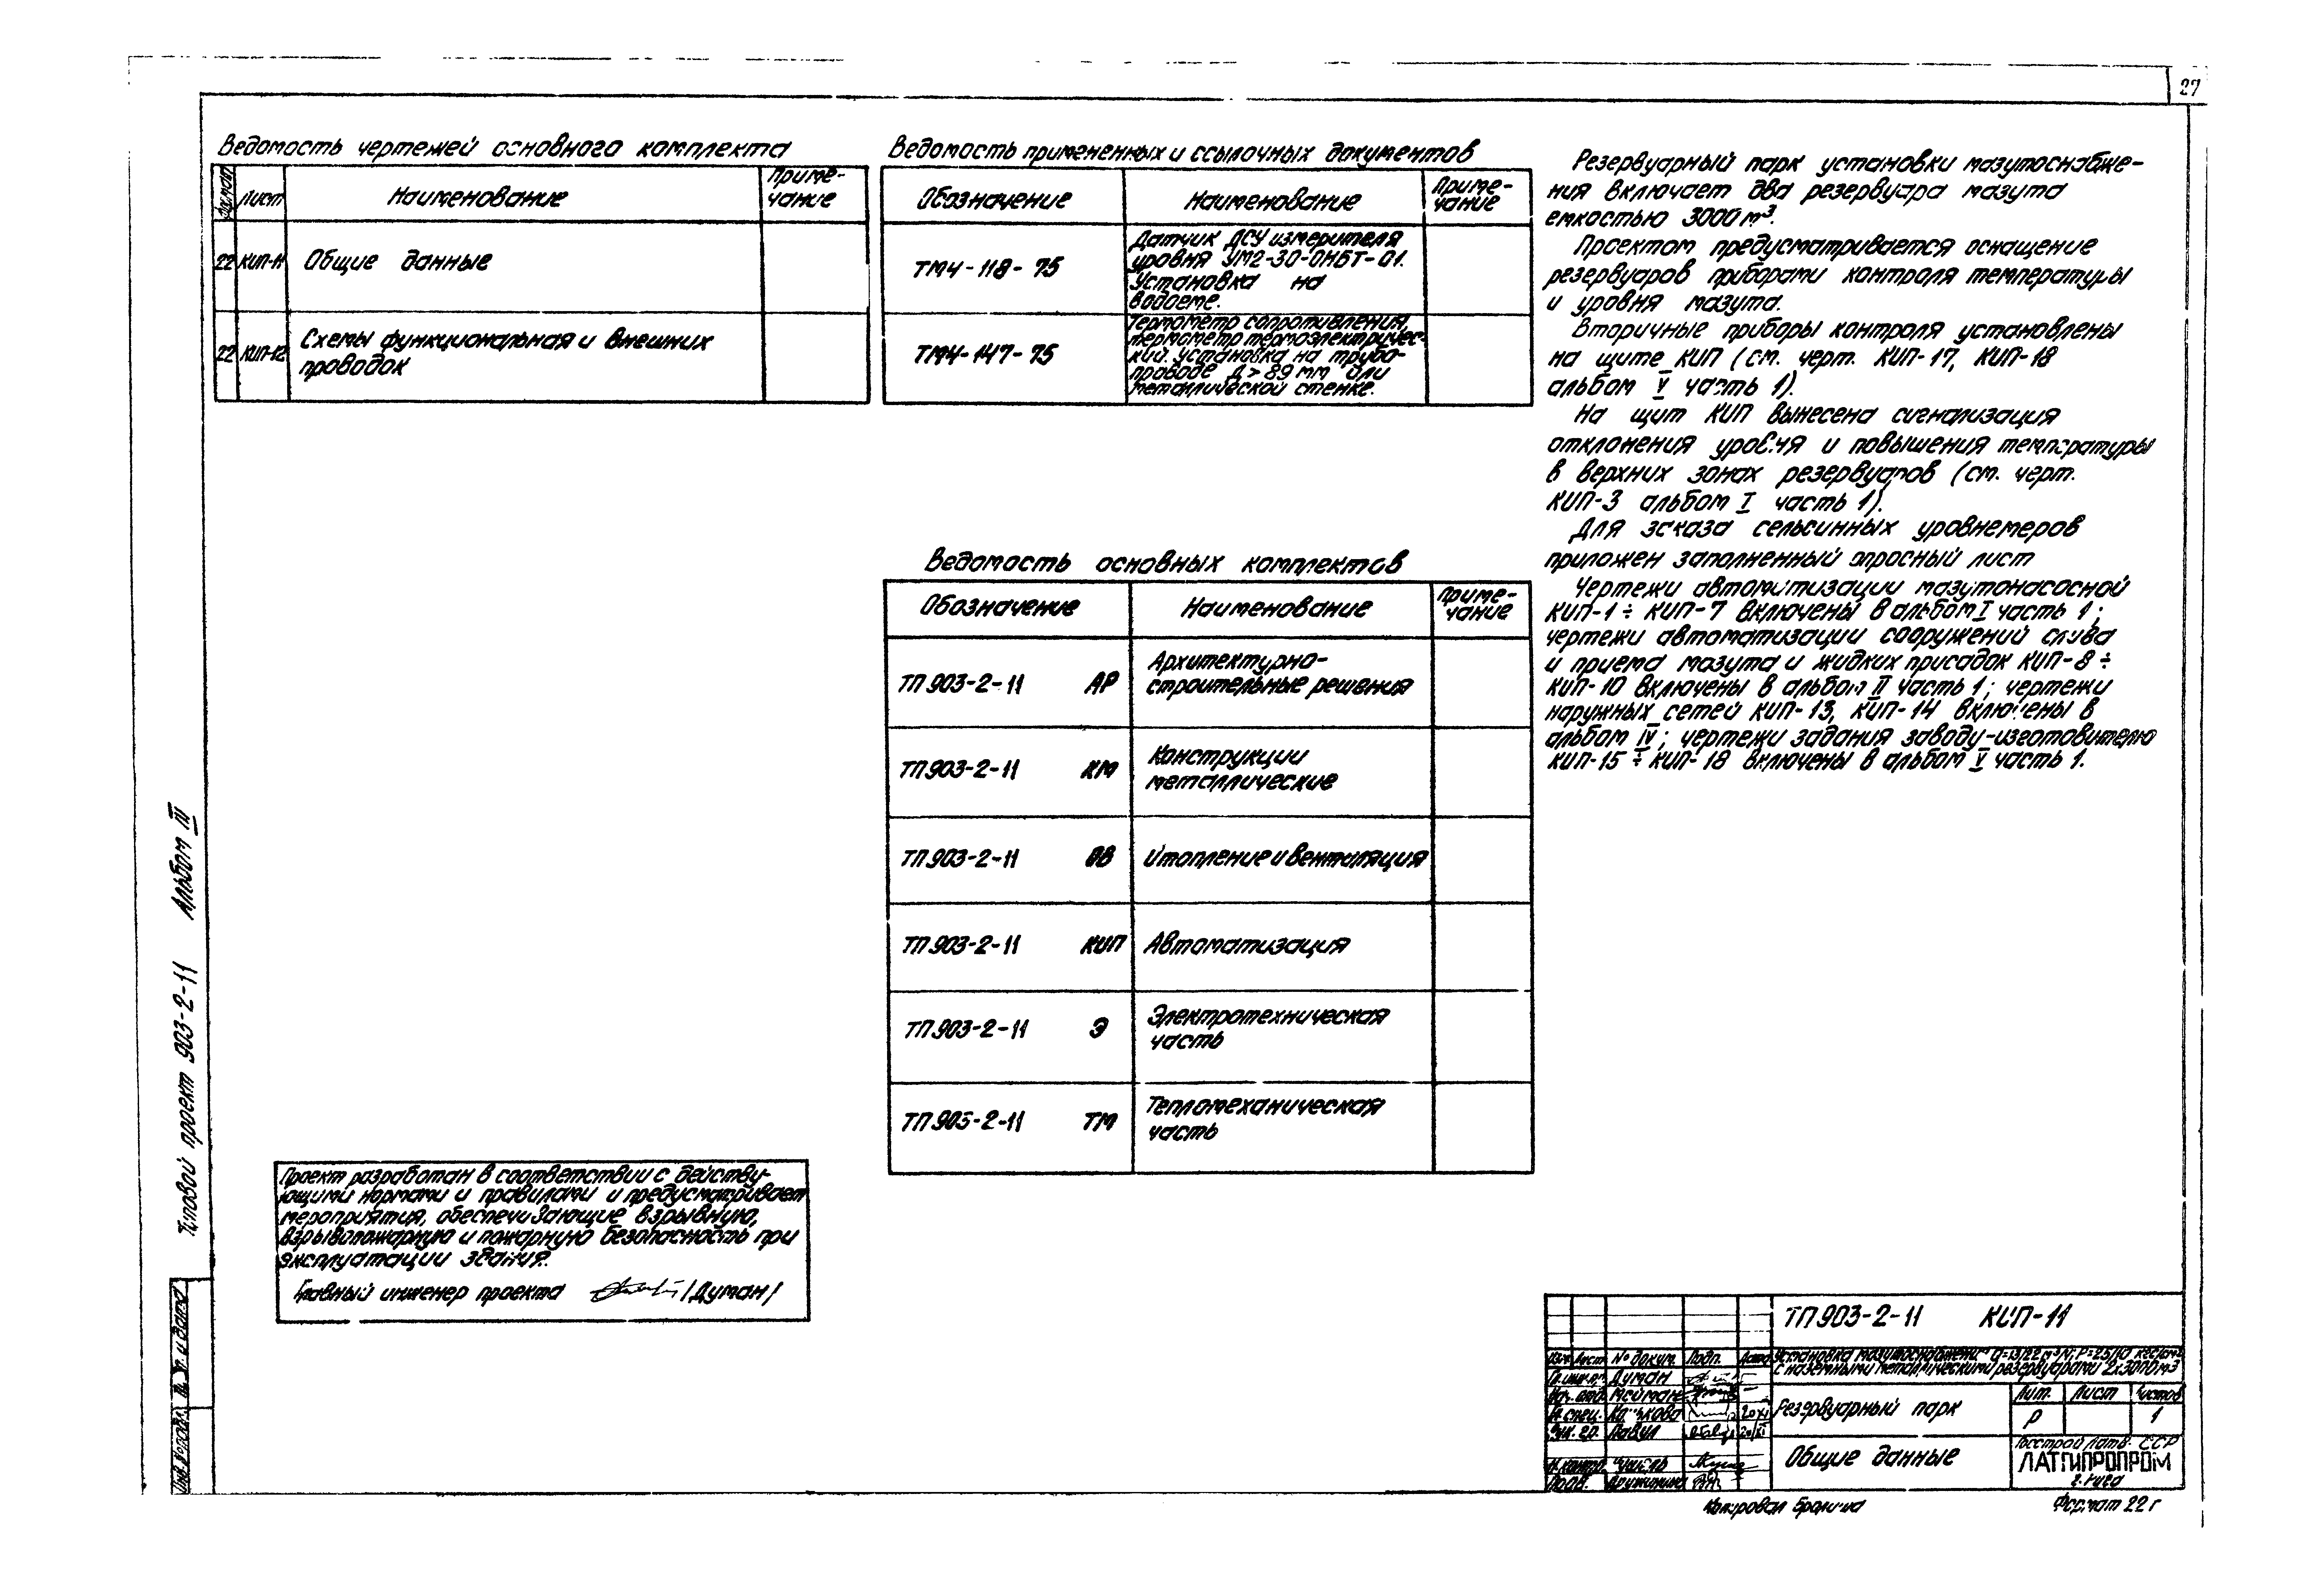 27
Ведомость чертежей основного комплекта
Формат Лист Наименование Приме-
чание
22 КИП-11 Общие данные
22 КИП-12 Схемы функциональная и внешних
проводок
Ведомость примененных и ссылочных документов
Обозначение Наименование Приме-
чание
ТМ4-118-75
Датчик ДСУ измерителя
уровня УМ2-30-ОНБТ-01.
Установка на
водоеме.
ТМ4-147-75
Термометр сопротивления,
термометр термоэлектричес-
кий. Установка на трубо-
проводе Д>89мм или
металлической стенке.
Ведомость основных комплектов
Обозначение Наименование Приме-
чание
ТП903-2-11 АР Архитектурно-
строительные решения
ТП903-2-11 КМ Конструкции
металлические
ТП903-2-11 ОВ Отопление и вентиляция
ТП903-2-11 КИП Автоматизация
ТП903-2-11 Э Электротехническая
часть
ТП903-2-11 ТМ Тепломеханическая
часть
Резервуарный парк установки мазутоснабже-
ния включает два резервуара мазута
емкостью 3000м³.
Проектом предусматривается оснащение
резервуаров приборами контроля температуры
и уровня мазута.
Вторичные приборы контроля установлены
на щите КИП (см. черт. КИП-17, КИП-18
альбом V часть 1).
На щит КИП вынесена сигнализация
отклонения уровня и повышения температуры
в верхних зонах резервуаров (см. черт.
КИП-3 альбом I часть 1).
Для заказа сельсинных уровнемеров
приложен заполненный опросный лист
Чертежи автоматизации мазутонасосной
КИП-1÷КИП-7 включены в альбом I часть 1;
чертежи автоматизации сооружений слива
и приема мазута и жидких присадок КИП-8÷
КИП-10 включены в альбом II часть 1; чертежи
наружных сетей КИП-13, КИП-14 включены в
альбом IV; чертежи задания заводу-изготовителю
КИП-15÷КИП-18 включены в альбом V часть 1.
Типовой проект 903-2-11 Альбом III
Проект разработан в соответствии с действу-
ющими нормами и правилами и предусматривает
мероприятия, обеспечивающие взрывную,
взрывопожарную и пожарную безопасность при
эксплуатации здания.
Главный инженер проекта /Думан/
Инв.№ подл. Подп. и дата
ТП903-2-11 КИП-11
Изм. Лист № докум. Подп. Дата
Установка мазутоснабжения Q=13/22 м³/ч; Р=25/10 кгс/см²
с наземными металлическими резервуарами 2х3000м3
Гл.инж.пр. Думан
Нач. отд. Мейман
Гл.спец. 20/XI
Рук. гр. Павул 20/XI
Н.контр.
Разраб. Дружинина
Резервуарный парк
Лит. Лист Листов
Р 1
Общие данные
Госстрой Латв. ССР
ЛАТГИПРОПРОМ
г. Рига
Копировал
Формат 22г